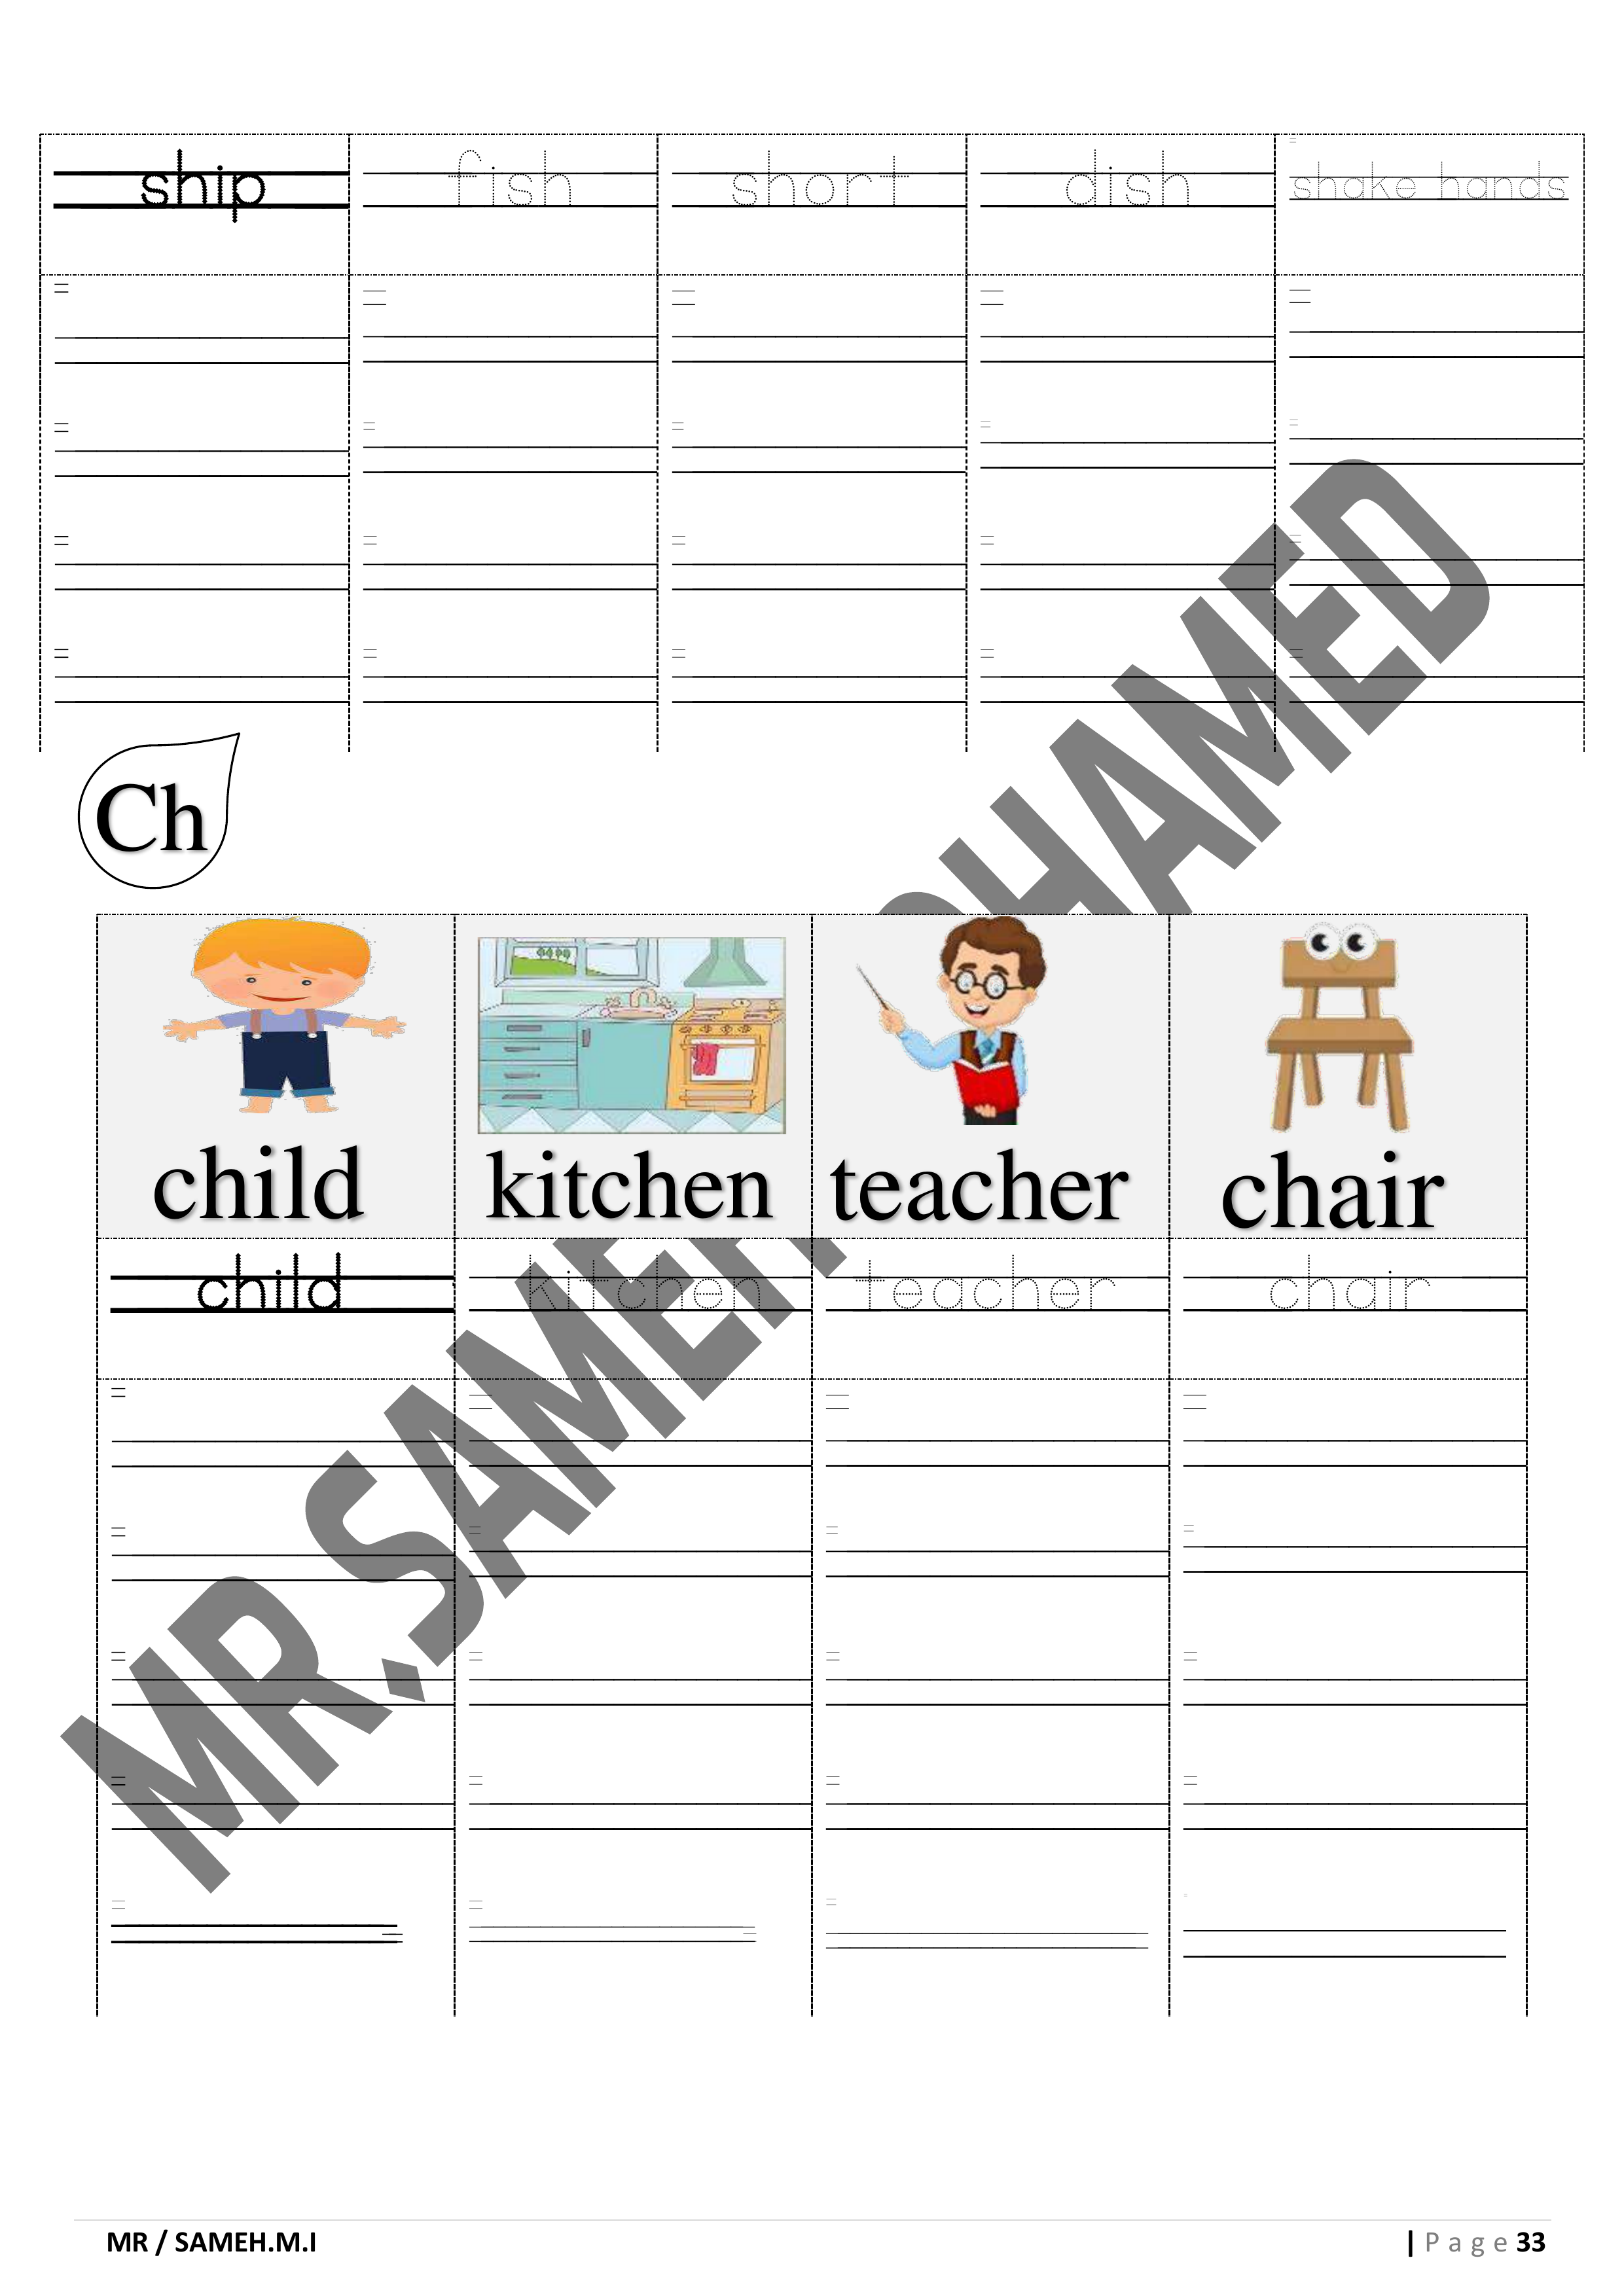 ship fish short dish shake hands
Ch
child kitchen teacher chair
child kitchen teacher chair
MR / SAMEH.M.I | Page 33